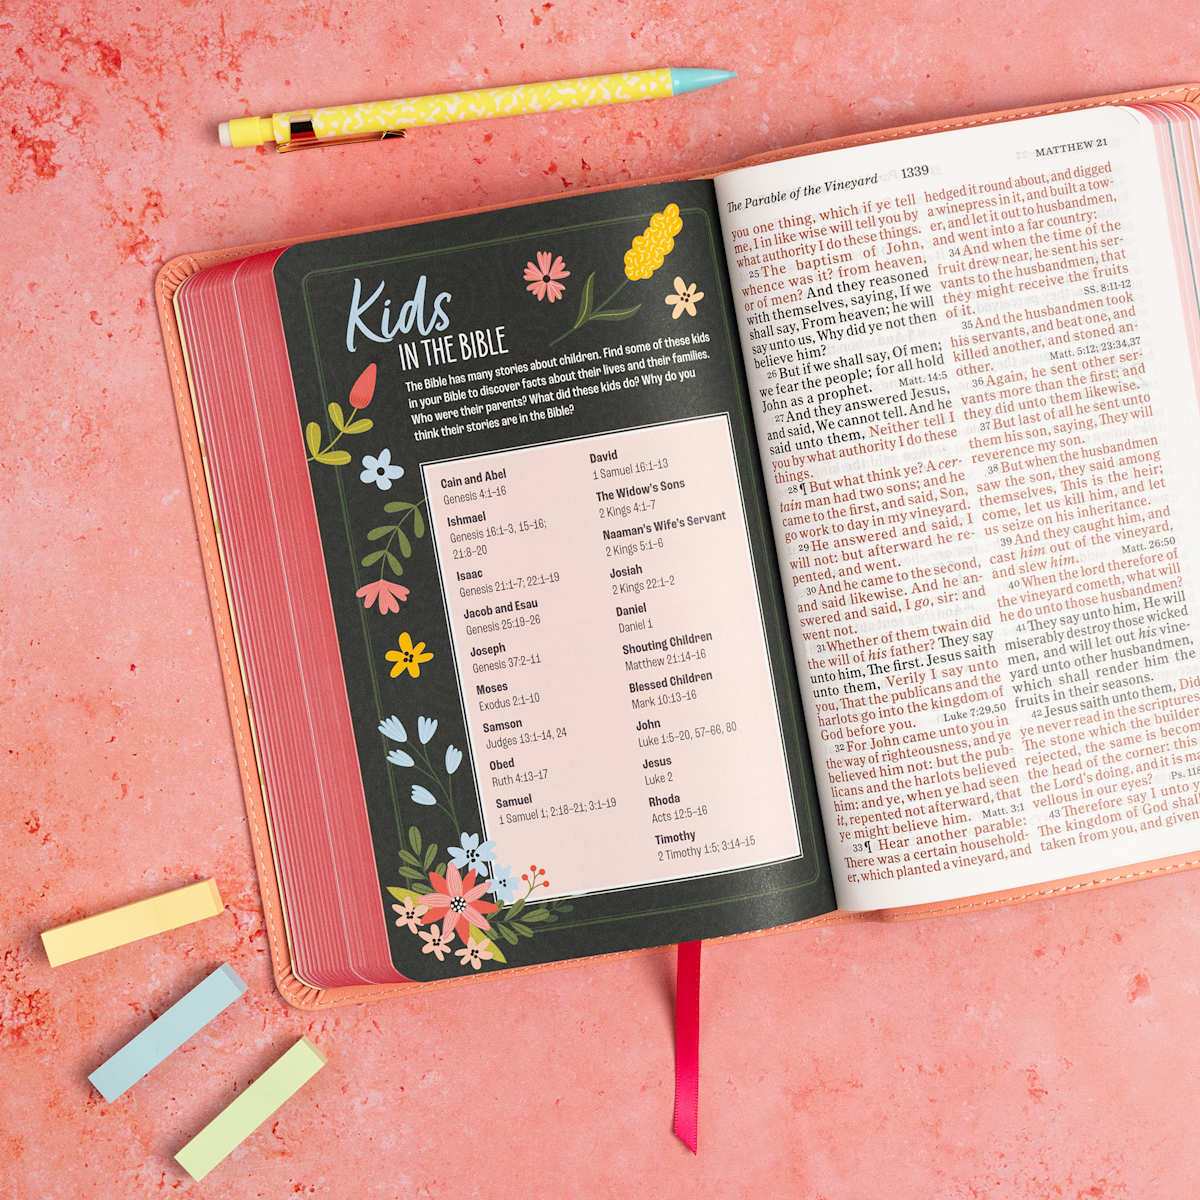 Kids
IN THE BIBLE
The Bible has many stories about children. Find some of these kids
in your Bible to discover facts about their lives and their families.
Who were their parents? What did these kids do? Why do you
think their stories are in the Bible?
Cain and Abel
Genesis 4:1–16
Ishmael
Genesis 16:1–3, 15–16;
21:8–20
Isaac
Genesis 21:1–7; 22:1–19
Jacob and Esau
Genesis 25:19–26
Joseph
Genesis 37:2–11
Moses
Exodus 2:1–10
Samson
Judges 13:1–14, 24
Obed
Ruth 4:13–17
Samuel
1 Samuel 1; 2:18–21; 3:1–19
David
1 Samuel 16:1–13
The Widow's Sons
2 Kings 4:1–7
Naaman's Wife's Servant
2 Kings 5:1–6
Josiah
2 Kings 22:1–2
Daniel
Daniel 1
Shouting Children
Matthew 21:14–16
Blessed Children
Mark 10:13–16
John
Luke 1:5–20, 57–66, 80
Jesus
Luke 2
Rhoda
Acts 12:5–16
Timothy
2 Timothy 1:5; 3:14–15
The Parable of the Vineyard
1339
MATTHEW 21
you one thing, which if ye tell
me, I in like wise will tell you by
what authority I do these things.
25 The baptism of John,
whence was it? from heaven,
or of men? And they reasoned
with themselves, saying, If we
shall say, From heaven; he will
say unto us, Why did ye not then
believe him?
26 But if we shall say, Of men;
we fear the people; for all hold
John as a prophet. Matt. 14:5
27 And they answered Jesus,
and said, We cannot tell. And he
said unto them, Neither tell I
you by what authority I do these
things.
28 ¶ But what think ye? A cer-
tain man had two sons; and he
came to the first, and said, Son,
go work to day in my vineyard.
29 He answered and said, I
will not: but afterward he re-
pented, and went.
30 And he came to the second,
and said likewise. And he an-
swered and said, I go, sir: and
went not.
31 Whether of them twain did
the will of his father? They say
unto him, The first. Jesus saith
unto them, Verily I say unto
you, That the publicans and the
harlots go into the kingdom of
God before you. Luke 7:29,50
32 For John came unto you in
the way of righteousness, and ye
believed him not: but the pub-
licans and the harlots believed
him: and ye, when ye had seen
it, repented not afterward, that
ye might believe him. Matt. 3:1
33 ¶ Hear another parable:
There was a certain household-
er, which planted a vineyard, and
hedged it round about, and digged
a winepress in it, and built a tow-
er, and let it out to husbandmen,
and went into a far country:
34 And when the time of the
fruit drew near, he sent his ser-
vants to the husbandmen, that
they might receive the fruits
of it. SS. 8:11-12
35 And the husbandmen took
his servants, and beat one, and
killed another, and stoned an-
other. Matt. 5:12; 23:34,37
36 Again, he sent other ser-
vants more than the first: and
they did unto them likewise.
37 But last of all he sent unto
them his son, saying, They will
reverence my son.
38 But when the husbandmen
saw the son, they said among
themselves, This is the heir;
come, let us kill him, and let
us seize on his inheritance.
39 And they caught him, and
cast him out of the vineyard,
and slew him. Matt. 26:50
40 When the lord therefore of
the vineyard cometh, what will
he do unto those husbandmen?
41 They say unto him, He will
miserably destroy those wicked
men, and will let out his vine-
yard unto other husbandmen,
which shall render him the
fruits in their seasons.
42 Jesus saith unto them, Did
ye never read in the scriptures
The stone which the builder
rejected, the same is becom
the head of the corner: this
the Lord's doing, and it is ma
vellous in our eyes? Ps. 118
43 Therefore say I unto y
The kingdom of God shal
taken from you, and given